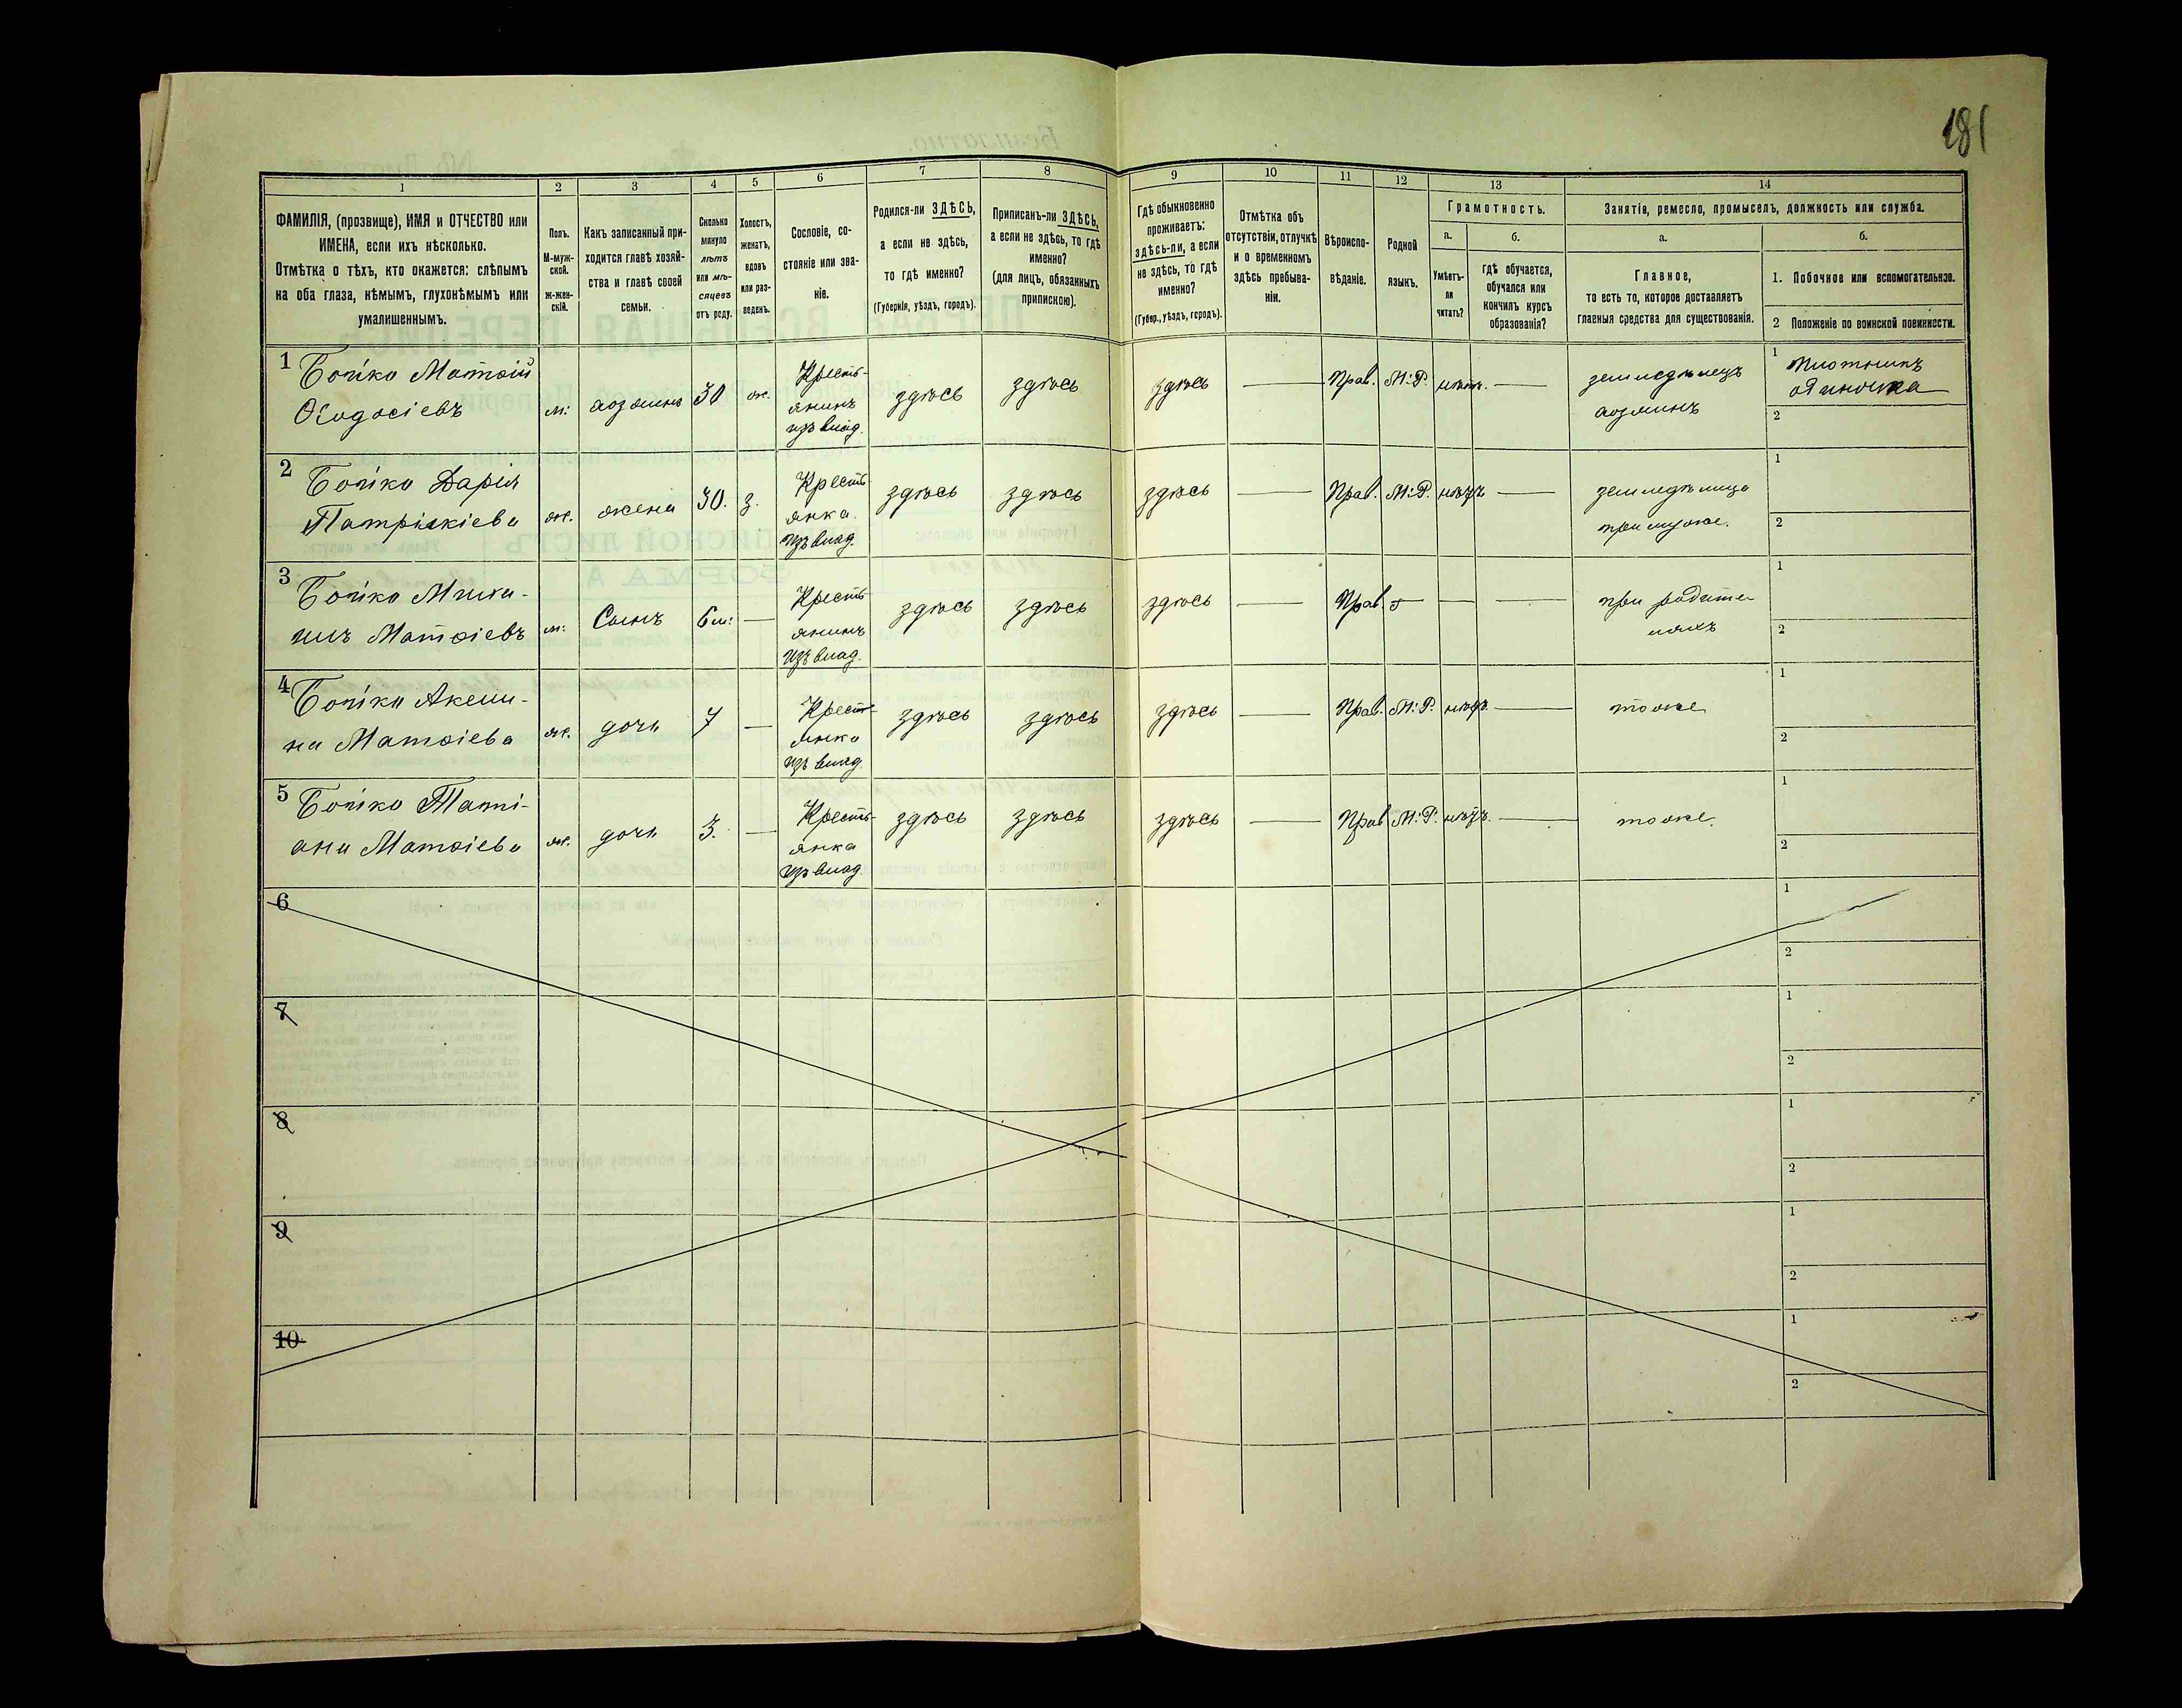 181
1 2 3 4 5 6 7 8 9 10 11 12 13 14
ФАМИЛІЯ, (прозвище), ИМЯ и ОТЧЕСТВО или
ИМЕНА, если ихъ нѣсколько.
Отмѣтка о тѣхъ, кто окажется: слѣпымъ
на оба глаза, нѣмымъ, глухонѣмымъ или
умалишеннымъ.
Полъ.
М-муж-
ской.
Ж-жен-
скій.
Какъ записанный при-
ходится главѣ хозяй-
ства и главѣ своей
семьи.
Сколько
минуло
лѣтъ
или мѣ-
сяцевъ
отъ роду.
Холостъ,
женатъ,
вдовъ
или раз-
веденъ.
Сословіе, со-
стояніе или зва-
ніе.
Родился-ли ЗДѢСЬ,
а если не здѣсь,
то гдѣ именно?
(Губернія, уѣздъ, городъ).
Приписанъ-ли ЗДѢСЬ,
а если не здѣсь, то гдѣ
именно?
(для лицъ, обязанныхъ
припискою).
Гдѣ обыкновенно
проживаетъ:
здѣсь-ли, а если
не здѣсь, то гдѣ
именно?
(Губер., уѣздъ, городъ).
Отмѣтка объ
отсутствіи, отлучкѣ
и о временномъ
здѣсь пребыва-
ніи.
Вѣроиспо-
вѣданіе.
Родной
языкъ.
Грамотность.
а.
Умѣетъ-
ли
читать?
б.
гдѣ обучается,
обучался или
кончилъ курсъ
образованія?
Занятіе, ремесло, промыселъ, должность или служба.
а.
Главное,
то есть то, которое доставляетъ
главныя средства для существованія.
б.
1. Побочное или вспомогательное.
2 Положеніе по воинской повинности.
1 Бойко Матѳій
Ѳеодосіевъ
м: хозяинъ 30 ж.
Кресть-
янинъ
изъ влад.
здѣсь здѣсь здѣсь — Прав. М:Р. нѣтъ. —
земледѣлецъ
хозяинъ
1 плотникъ
одиночка
2
2 Бойко Дарія
Патрікіева
ж. жена 30. з.
Кресть
янка
изъ влад.
здѣсь здѣсь здѣсь — Прав. М:Р. нѣтъ —
земледѣлица
при мужѣ.
1
2
3 Бойко Миха-
илъ Матѳіевъ
м: Сынъ 6м: —
Кресть
янинъ
изъ влад.
здѣсь здѣсь здѣсь — Прав. — —
при родите
ляхъ
1
2
4 Бойко Акели-
на Матѳіева
ж. дочь 7 —
Кресть-
янка
изъ влад.
здѣсь здѣсь здѣсь — Прав. М:Р. нѣтъ. —
тоже
1
2
5 Бойко Таті-
ана Матѳіева
ж. дочь 3. —
Кресть-
янка
изъ влад.
здѣсь здѣсь здѣсь — Прав М:Р. нѣтъ. —
тоже.
1
2
6
1
2
7
1
2
8
1
2
9
1
2
10
1
2